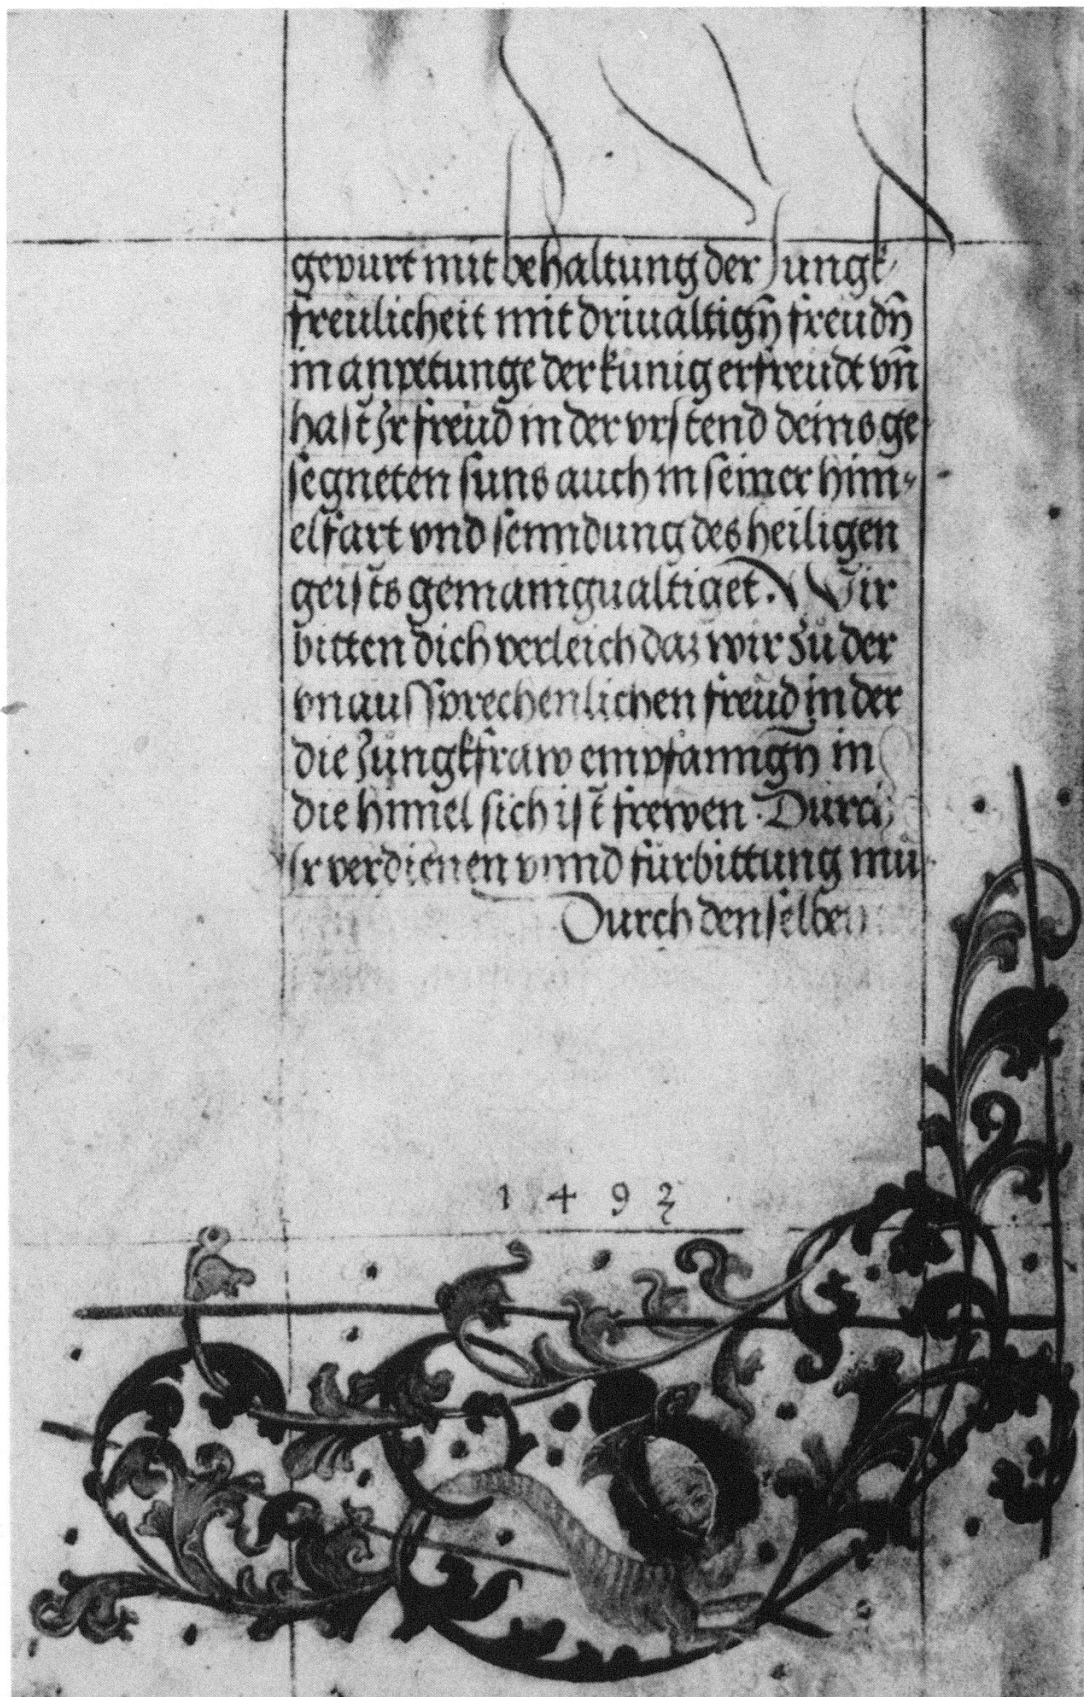 gepurt mit behaltung der Jungk-
freŭlicheit mit driualtign̄ freŭdn̄
in anpetunge der kŭnig erfreŭdt vn̄
hast Jr freŭd in der vrstend deins ge-
segneten suns auch in seiner him-
elfart vnd senndung des heiligen
geists gemanigualtiget. Wir
bitten dich verleich daz wir zŭ der
vnaussprechenlichen freŭd in der
die Jŭngkfraw empfanngn̄ in
die himel sich ist frewen. Durch
Jr verdienen vnnd fŭrbittung
Durch denselben
1492